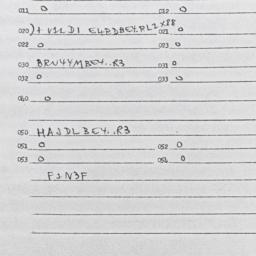 011 0 012 0
020 )+ V1LD1 E4RDBEY.RL1X88 021 0
022 0 023 0
030 BRU4YMBEY..R3 031 0
032 0 033 0
040 0
050 HAJDLBEY..R3
051 0 052 0
053 0 054 0
F1N3F